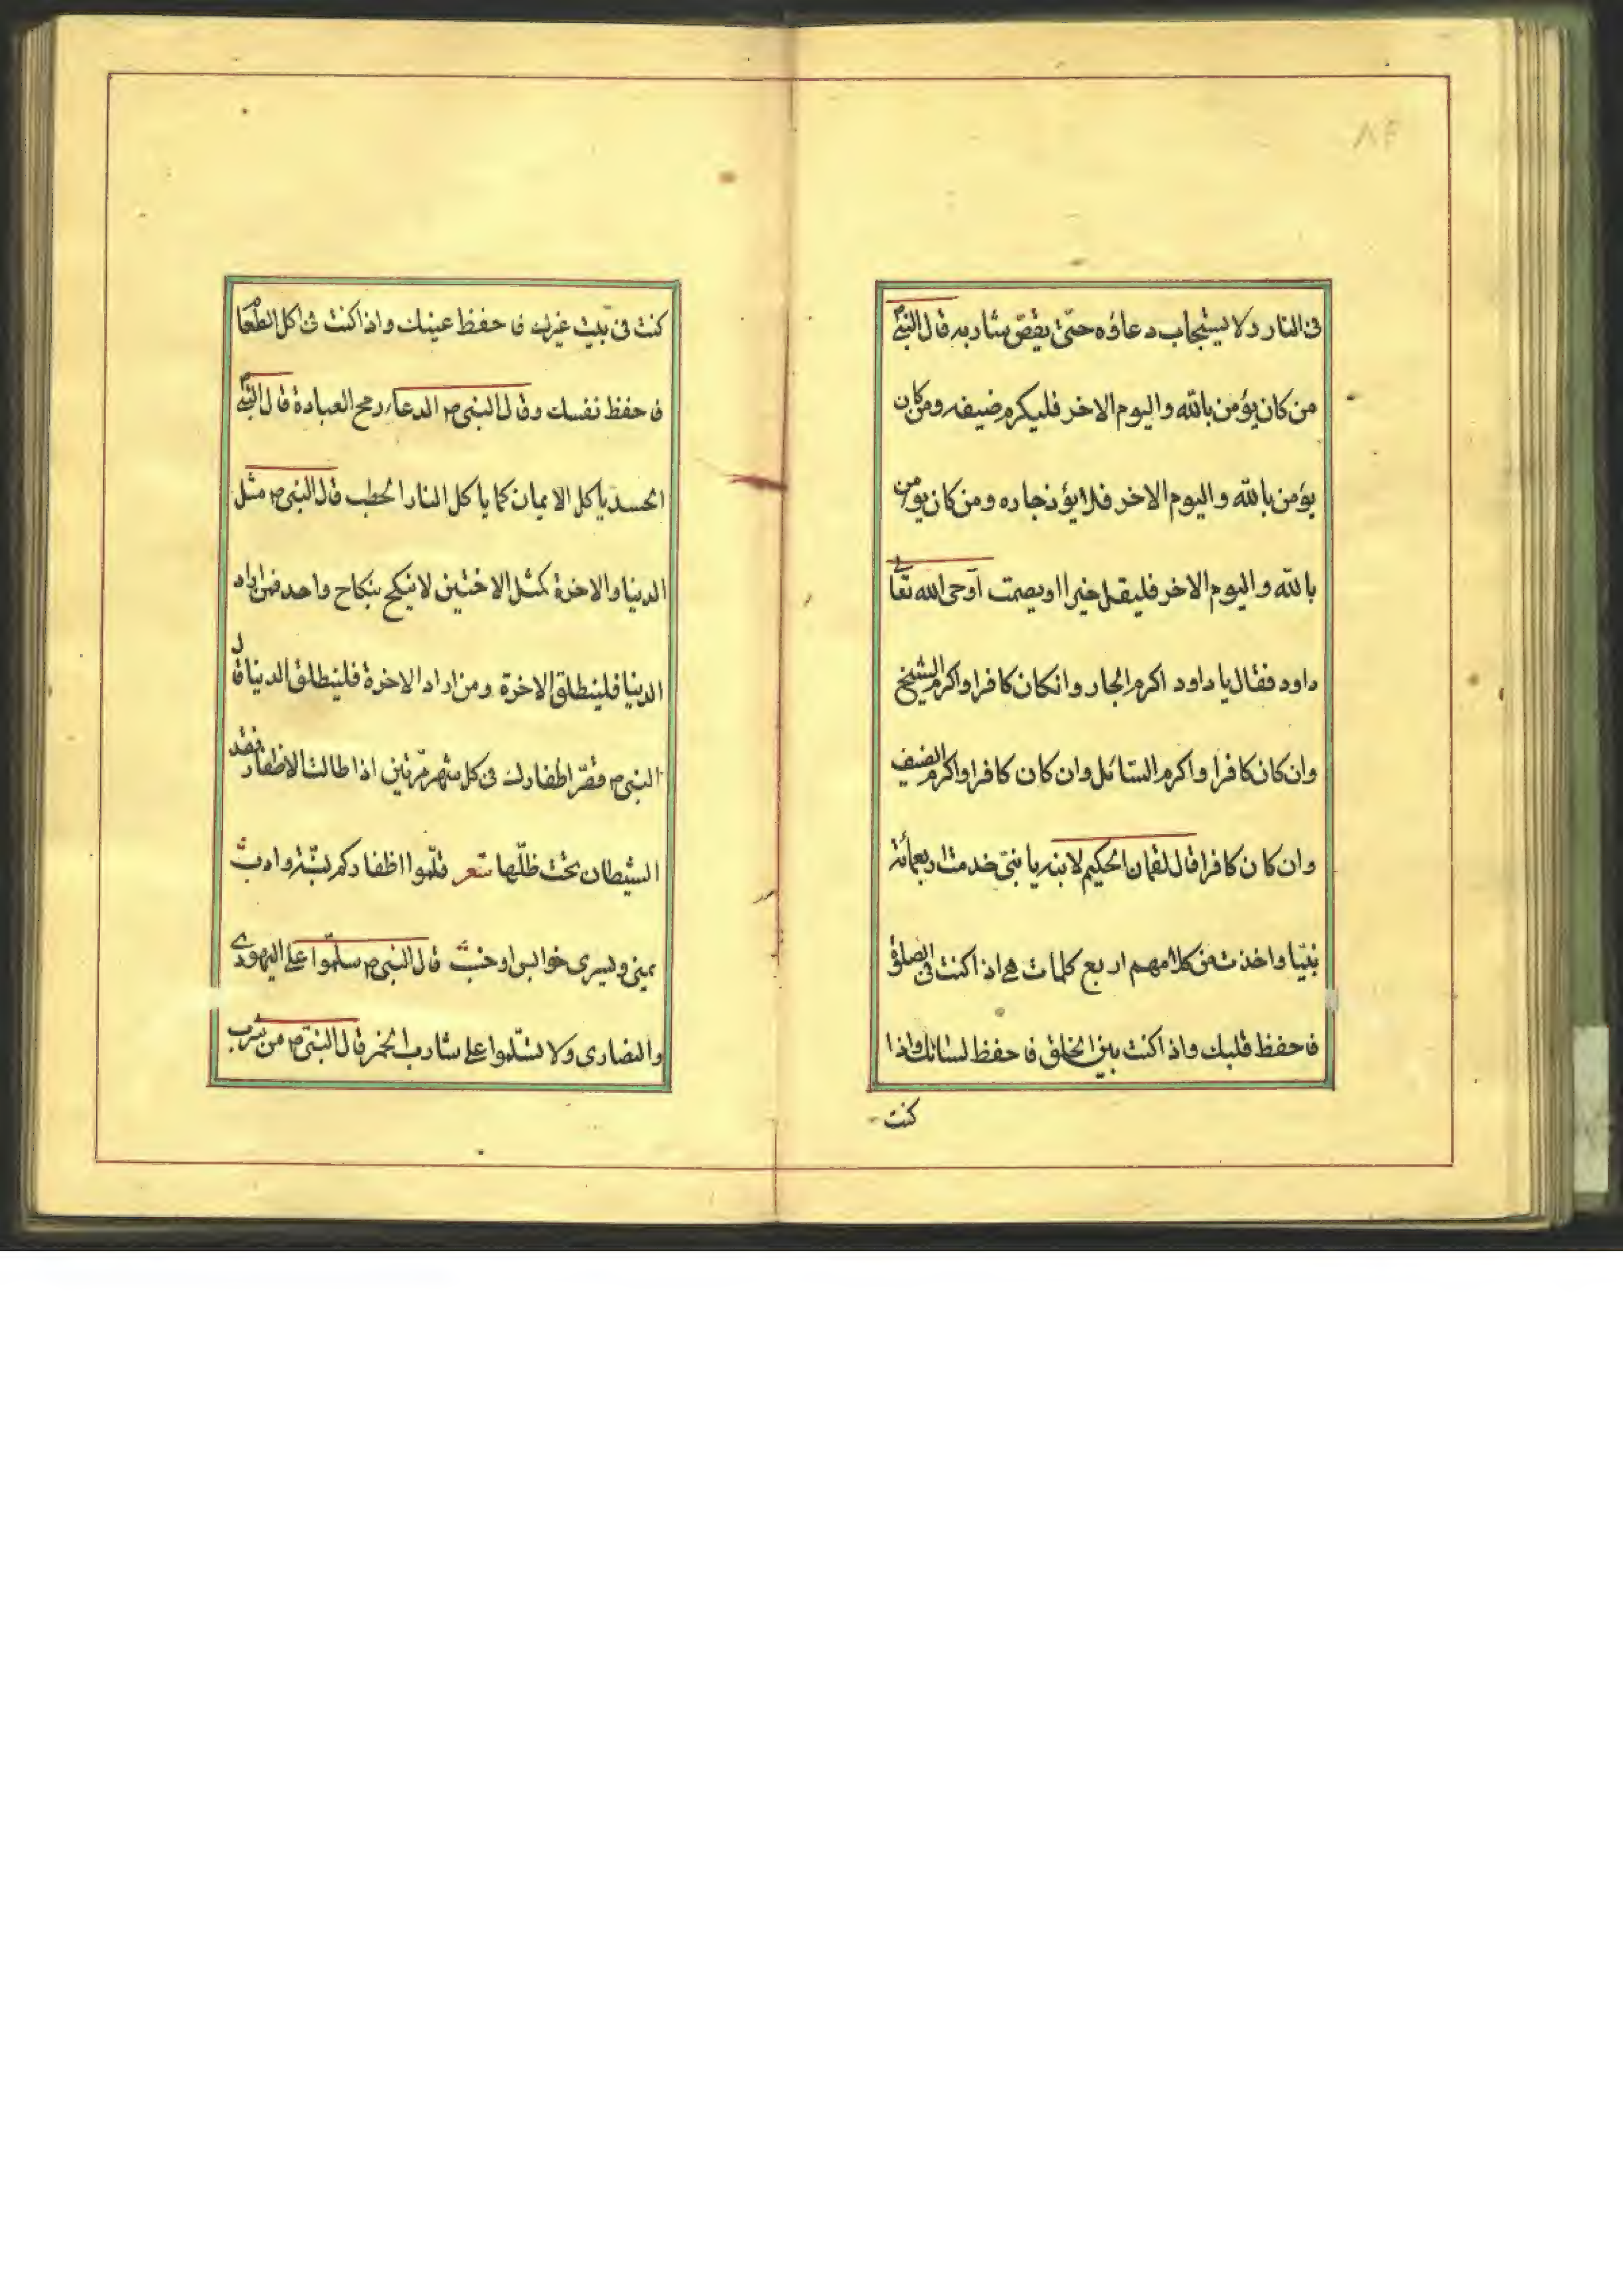 ٨٤
فى النار ولا يستجاب دعاؤه حتّى يقصّ شاربه قال النبى
من كان يؤمن بالله واليوم الاخر فليكرم ضيفه ومن كان
يؤمن بالله واليوم الاخر فلا يؤذ جاره ومن كان يؤمن
بالله واليوم الاخر فليقل خيرا او يصمت اوحى الله تعالى
داود فقال يا داود اكرم الجار وانكان كافرا واكرم الشيخ
وان كان كافرا واكرم السائل وان كان كافرا واكرم الضيف
وان كان كافرا قال لقمان الحكيم لابنه يا بنىّ خدمت اربعمائة
نبيّا واخذت من كلامهم اربع كلمات هى اذا كنت فى الصلوة
فاحفظ قلبك واذا كنت بين الخلق فاحفظ لسانك واذا
كنت
كنت فى بيت غيرك فاحفظ عينك واذا كنت فى اكل الطعام
فاحفظ نفسك وقال النبى ص الدعاء رمح العبادة قال النبى
الحسد ياكل الايمان كما ياكل النار الحطب قال النبى ص مثل
الدنيا والاخرة كمثل الاختين لا ينكح بنكاح واحد فمن اراد
الدنيا فلينطلق الاخرة ومن اراد الاخرة فلينطلق الدنيا قال
النبى ص قصّر اظفارك فى كل شهر مرّتين اذا طالت الاظفار
الشيطان تحت ظلّها شعر قلّموا اظفاركم بسنّة وادب
يمنى ويسرى خوابس اوخسب قال النبى ص سلّموا على اليهودى
والنصارى ولا تسلّموا على شارب الخمر قال النبى ص من شرب